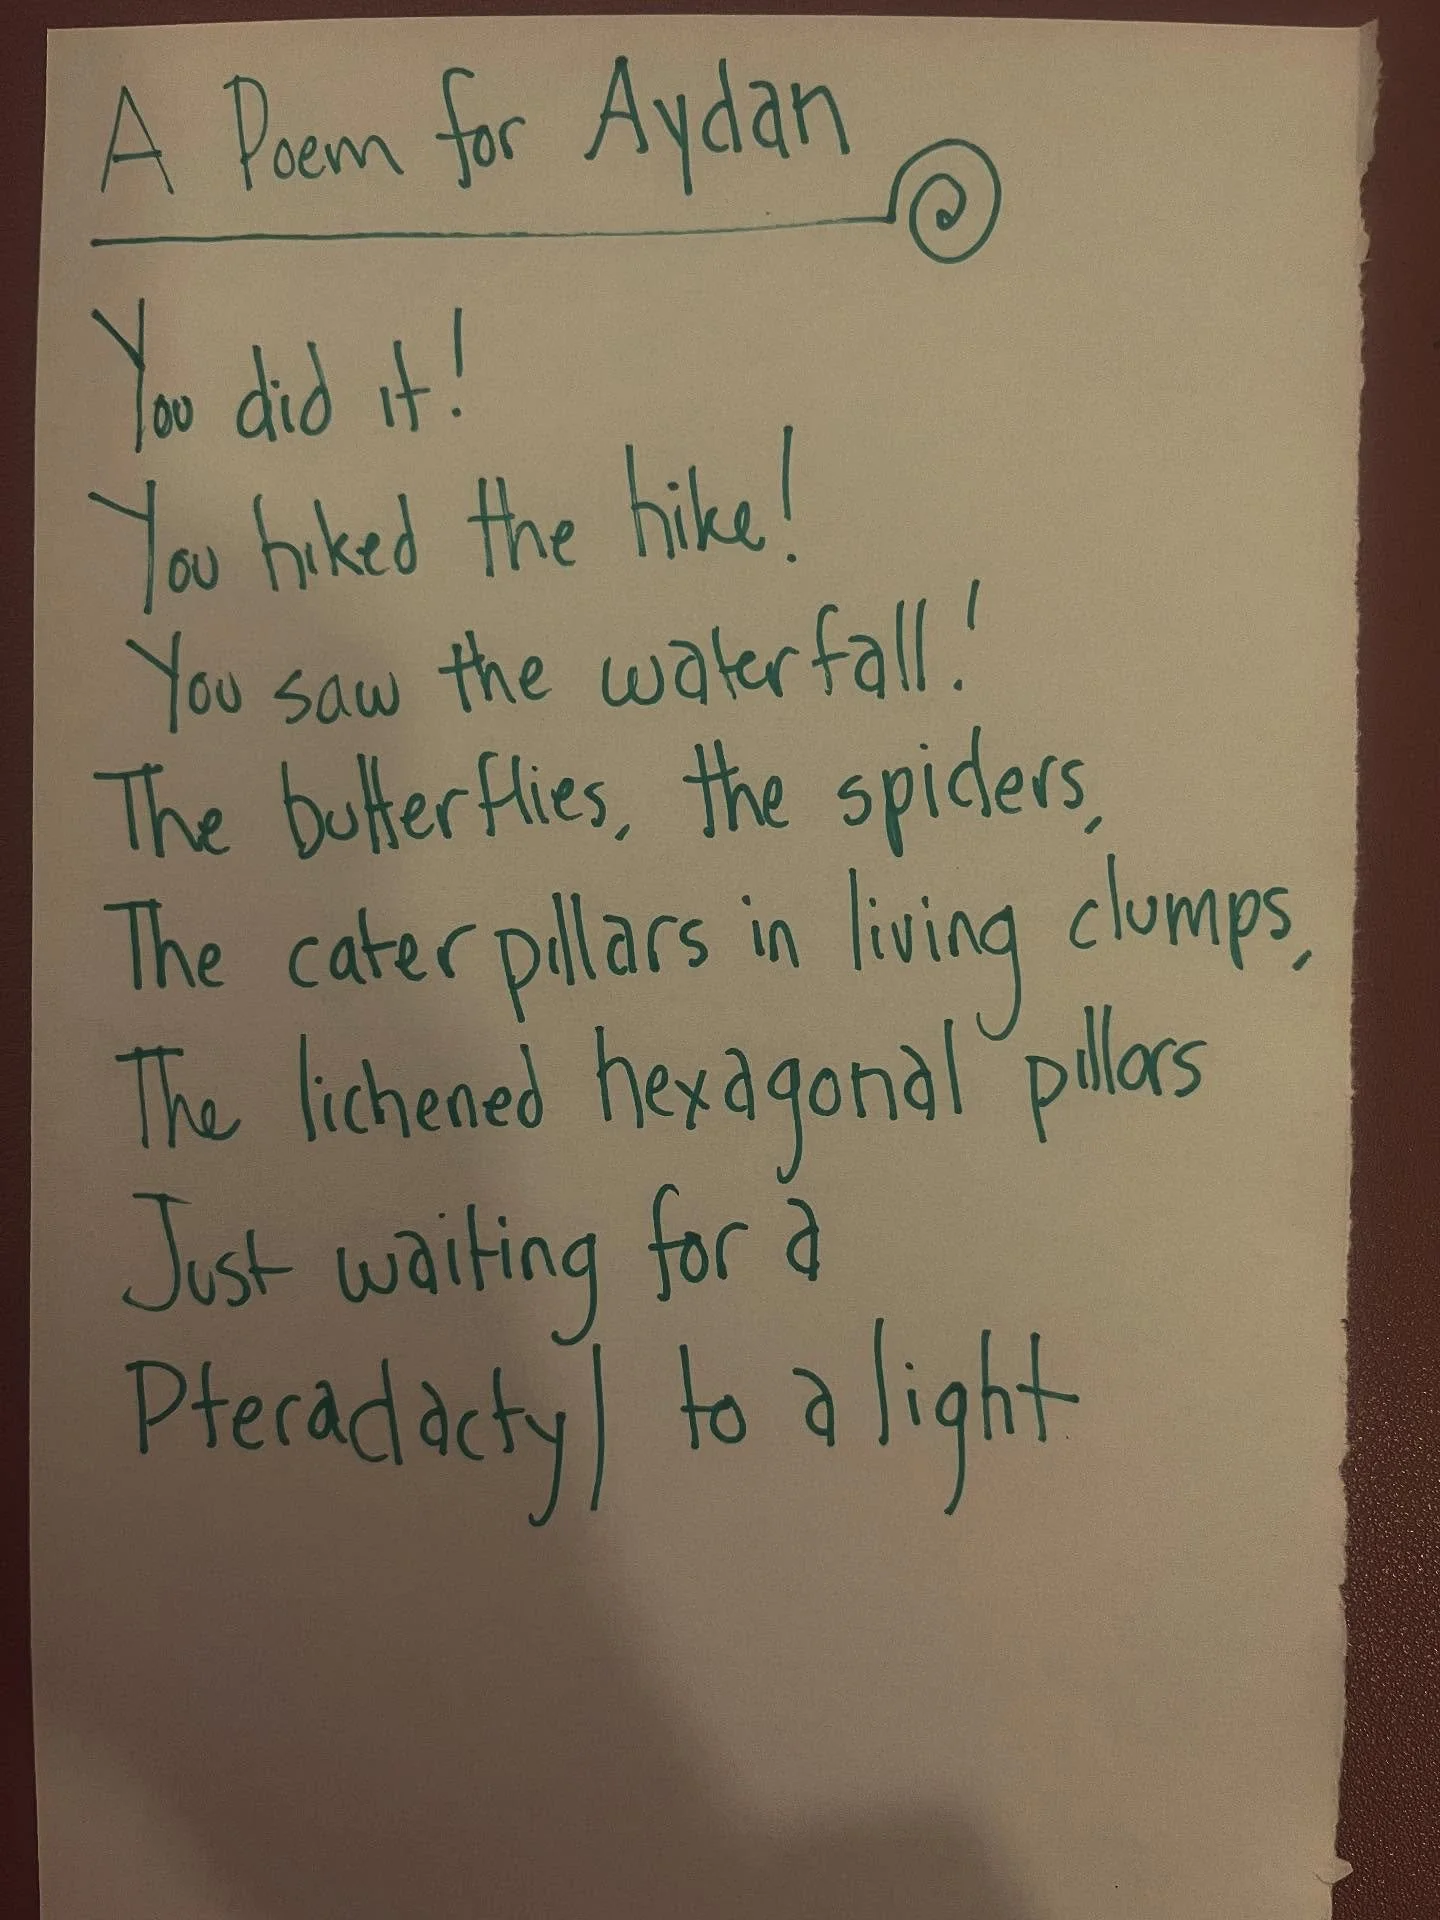 A Poem for Aydan
You did it!
You hiked the hike!
You saw the waterfall!
The butterflies, the spiders,
The caterpillars in living clumps,
The lichened hexagonal pillars
Just waiting for a
Pteradactyl to alight